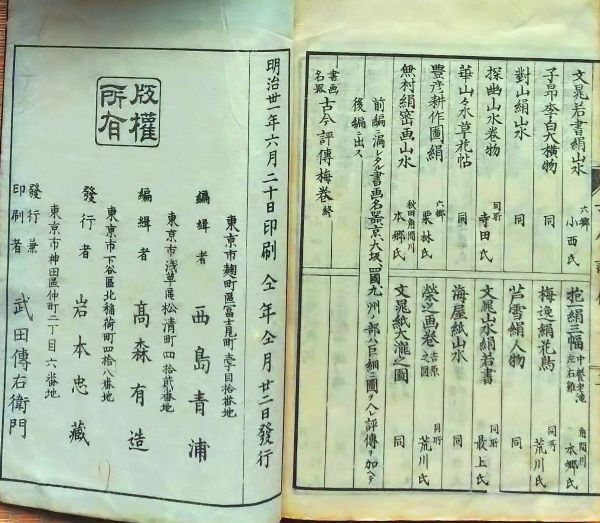 文晁若書絹山水 六郷 小西氏
子昂李白大横物 同
對山絹山水 同
探幽山水巻物 同所 寺田氏
華山々水草花帖 同
豊彦耕作圖絹 六郷 栗林氏
無村絹密画山水 秋田角間川 本郷氏
抱一絹三幅 中養老滝 左右雞 角間川 本郷氏
梅逸絹花鳥 同所 荒川氏
芦雪絹人物 同
文晁山水絹若書 同所 最上氏
海屋紙山水 同
榮之画巻 吉原之圖 同所 荒川氏
文晁紙大瀧之圖 同
前編ニ漏レタル書画名噐京、大坂、四國九州ノ部ハ巨細ニ圖ヲ入レ評傳ヲ加ヘテ
後編ニ出ス
書画名噐 古今評傳梅巻 終
明治卅一年六月二十日印刷 仝年仝月廿二日發行
東京市麹町區富士見町壱丁目拾番地
編緝者 西島青浦
東京市浅草區松清町四拾貳番地
編緝者 髙森有造
東京市下谷區北稲荷町四拾八番地
發行者 岩本忠藏
東京市神田區仲町二丁目六番地
發行兼印刷者 武田傳右衛門
版權所有